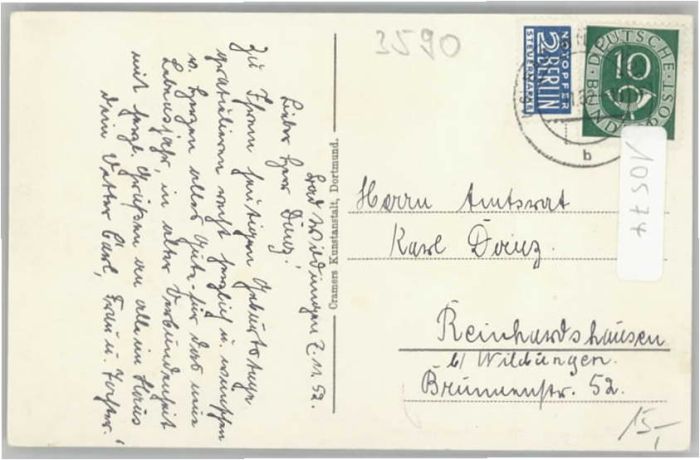 3590
NOTOPFER
2 BERLIN
STEUERMARKE
DEUTSCHE BUNDESPOST
10
b
10574
Bad Wildungen 2.11.52.
Lieber Herr Dainz!
Zu Ihrem heutigen Geburtstage
gratulieren recht herzlich u. wünschen
v. Herzen alles Gute für das neue
Lebensjahr, in alter Verbundenheit
mit herzl. Grüßen an alle im Haus
dein Vetter Carl, Frau u. Tochter!
Cramers Kunstanstalt, Dortmund.
Herrn Amtsrat
Karl Dainz.
Reinhardshausen
b/ Wildungen.
Brunnenstr. 52.
15,-